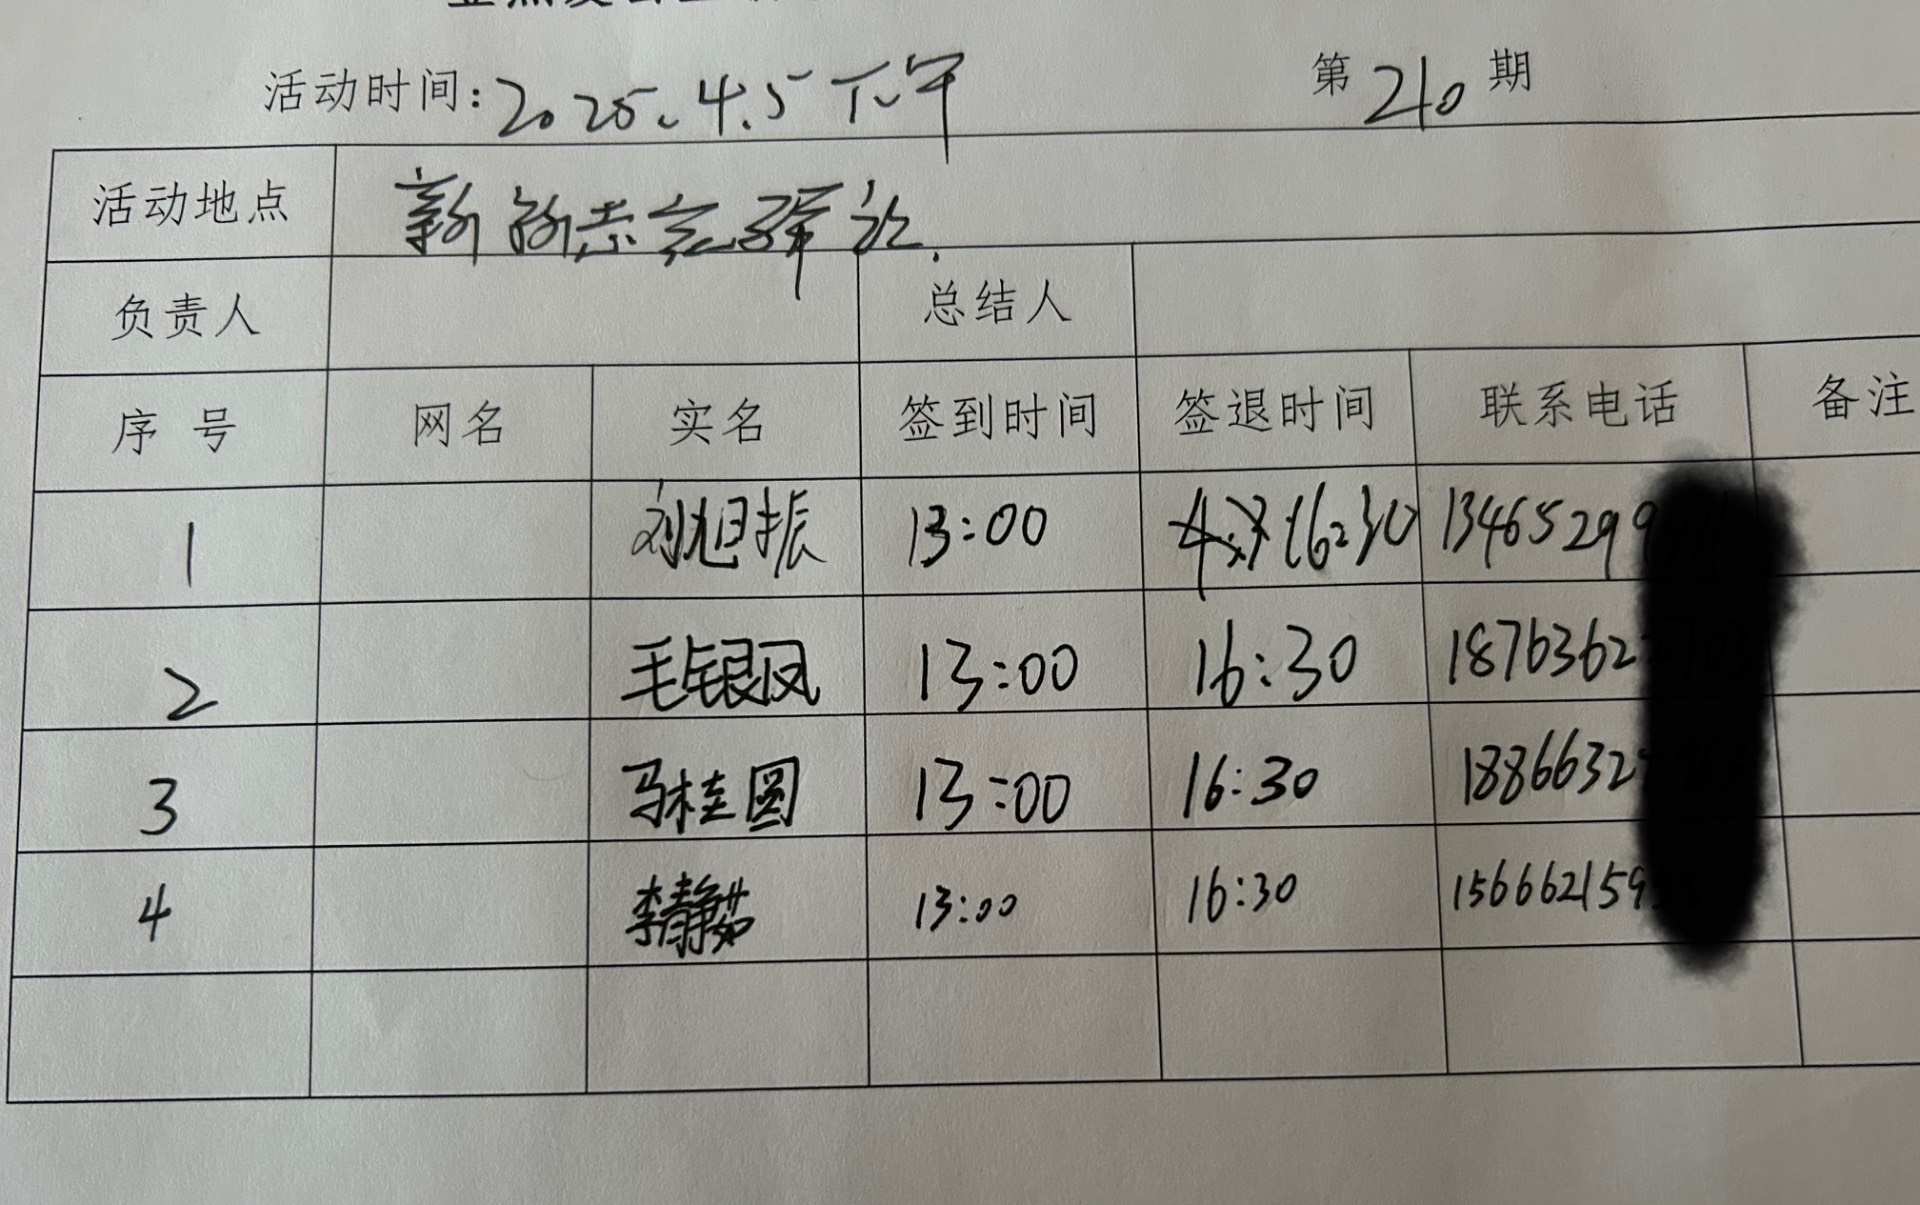 活动时间: 2025.4.5下午 第 210 期
活动地点 新
负责人 总结人
序 号 网名 实名 签到时间 签退时间 联系电话 备注
1 刘旭振 13:00 16:30 13465299
2 毛银凤 13:00 16:30 18763622
3 马桂圆 13:00 16:30 1886632
4 李静茹 13:00 16:30 156662159